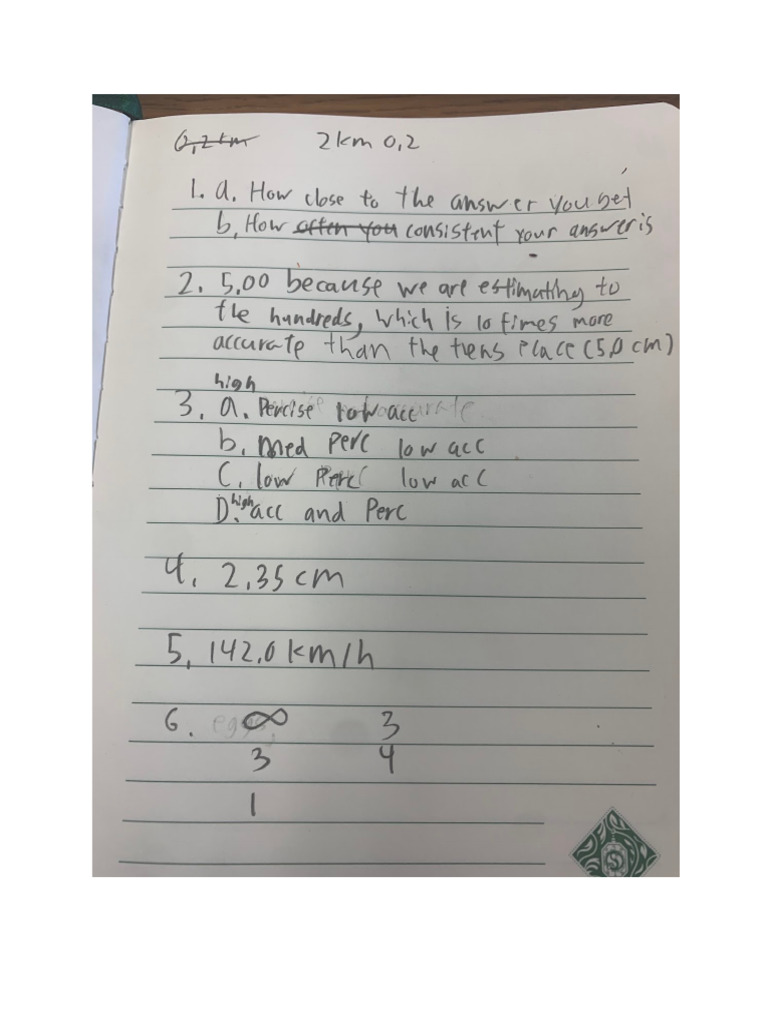 0,2km 2km 0,2
1. a. How close to the answer you get
b, How often you consistent your answer is
2. 5,00 because we are estimating to
the hundreds, which is 10 times more
accurate than the tens place (5,0 cm)
high
3. a. Percise low acc
b. Med Perc low acc
C. low Perc low acc
D. high acc and Perc
4. 2,35 cm
5, 142,0 km/h
6. ∞ 3
3 4
1
S